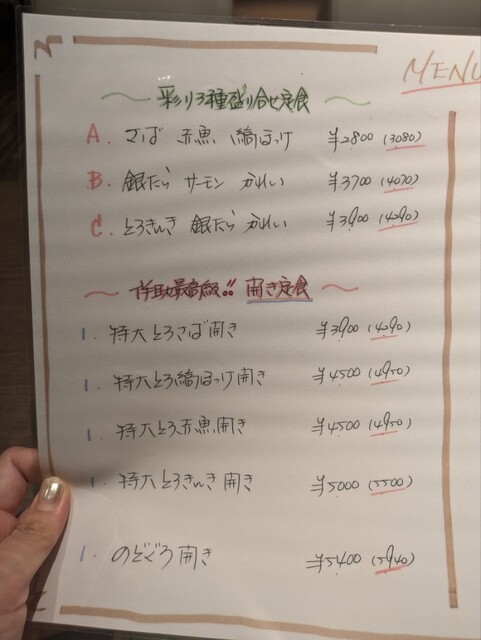 MENU
彩り3種盛り合せ定食
A. さば 赤魚 縞ほっけ ¥2800 (3080)
B. 銀だら サーモン かれい ¥3700 (4070)
C. とろきんき 銀だら かれい ¥3900 (4290)
最高級!! 開き定食
1. 特大とろさば開き ¥3900 (4290)
1. 特大とろ縞ほっけ開き ¥4500 (4950)
1. 特大とろ赤魚開き ¥4500 (4950)
1. 特大とろきんき開き ¥5000 (5500)
1. のどぐろ開き ¥5400 (5940)